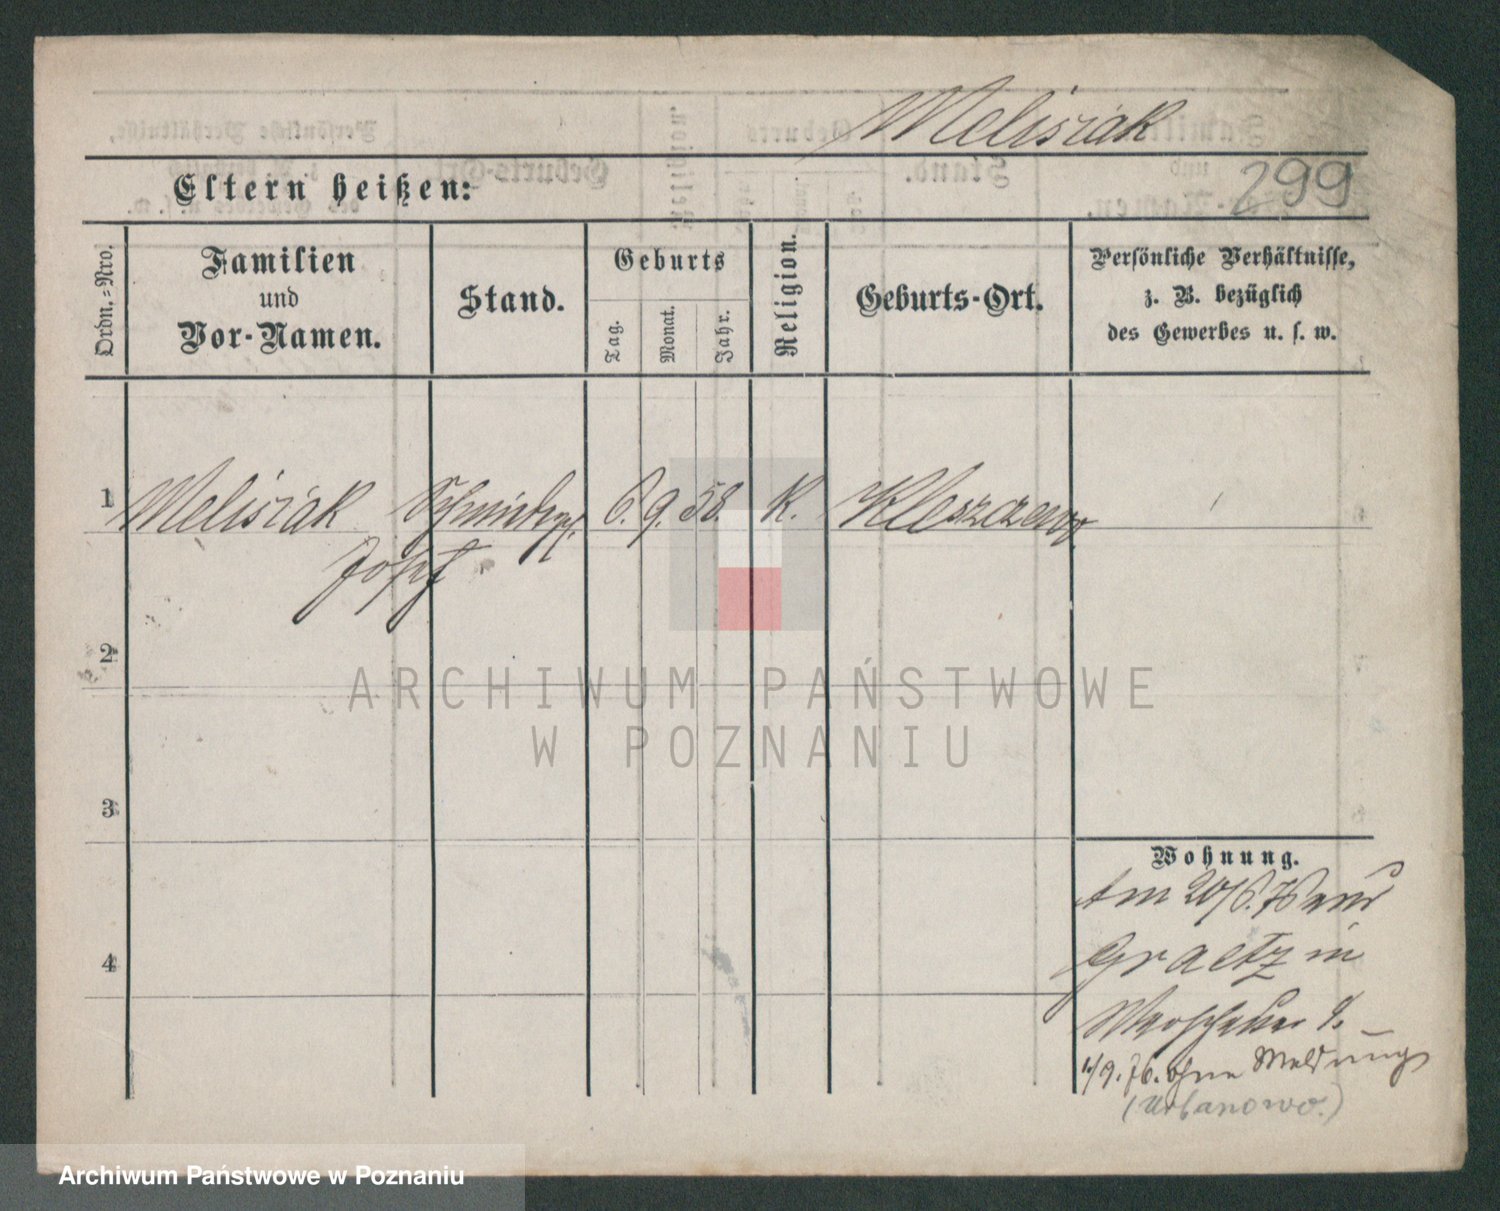 Meliszak
299
Eltern heißen:
Ordn.=Nro.
Familien
und
Vor-Namen.
Stand.
Geburts
Tag.
Monat.
Jahr.
Religion.
Geburts-Ort.
Persönliche Verhältnisse,
z. B. bezüglich
des Gewerbes u. s. w.
1 Meliszak 6. 9. 58. K. Kleszczewo
Josef
2
3
4
Wohnung.
Am 20/6. 76 aus
Graetz in
1/9. 76. ohne Meldung
(Urbanowo.)
ARCHIWUM PAŃSTWOWE
W POZNANIU
Archiwum Państwowe w Poznaniu